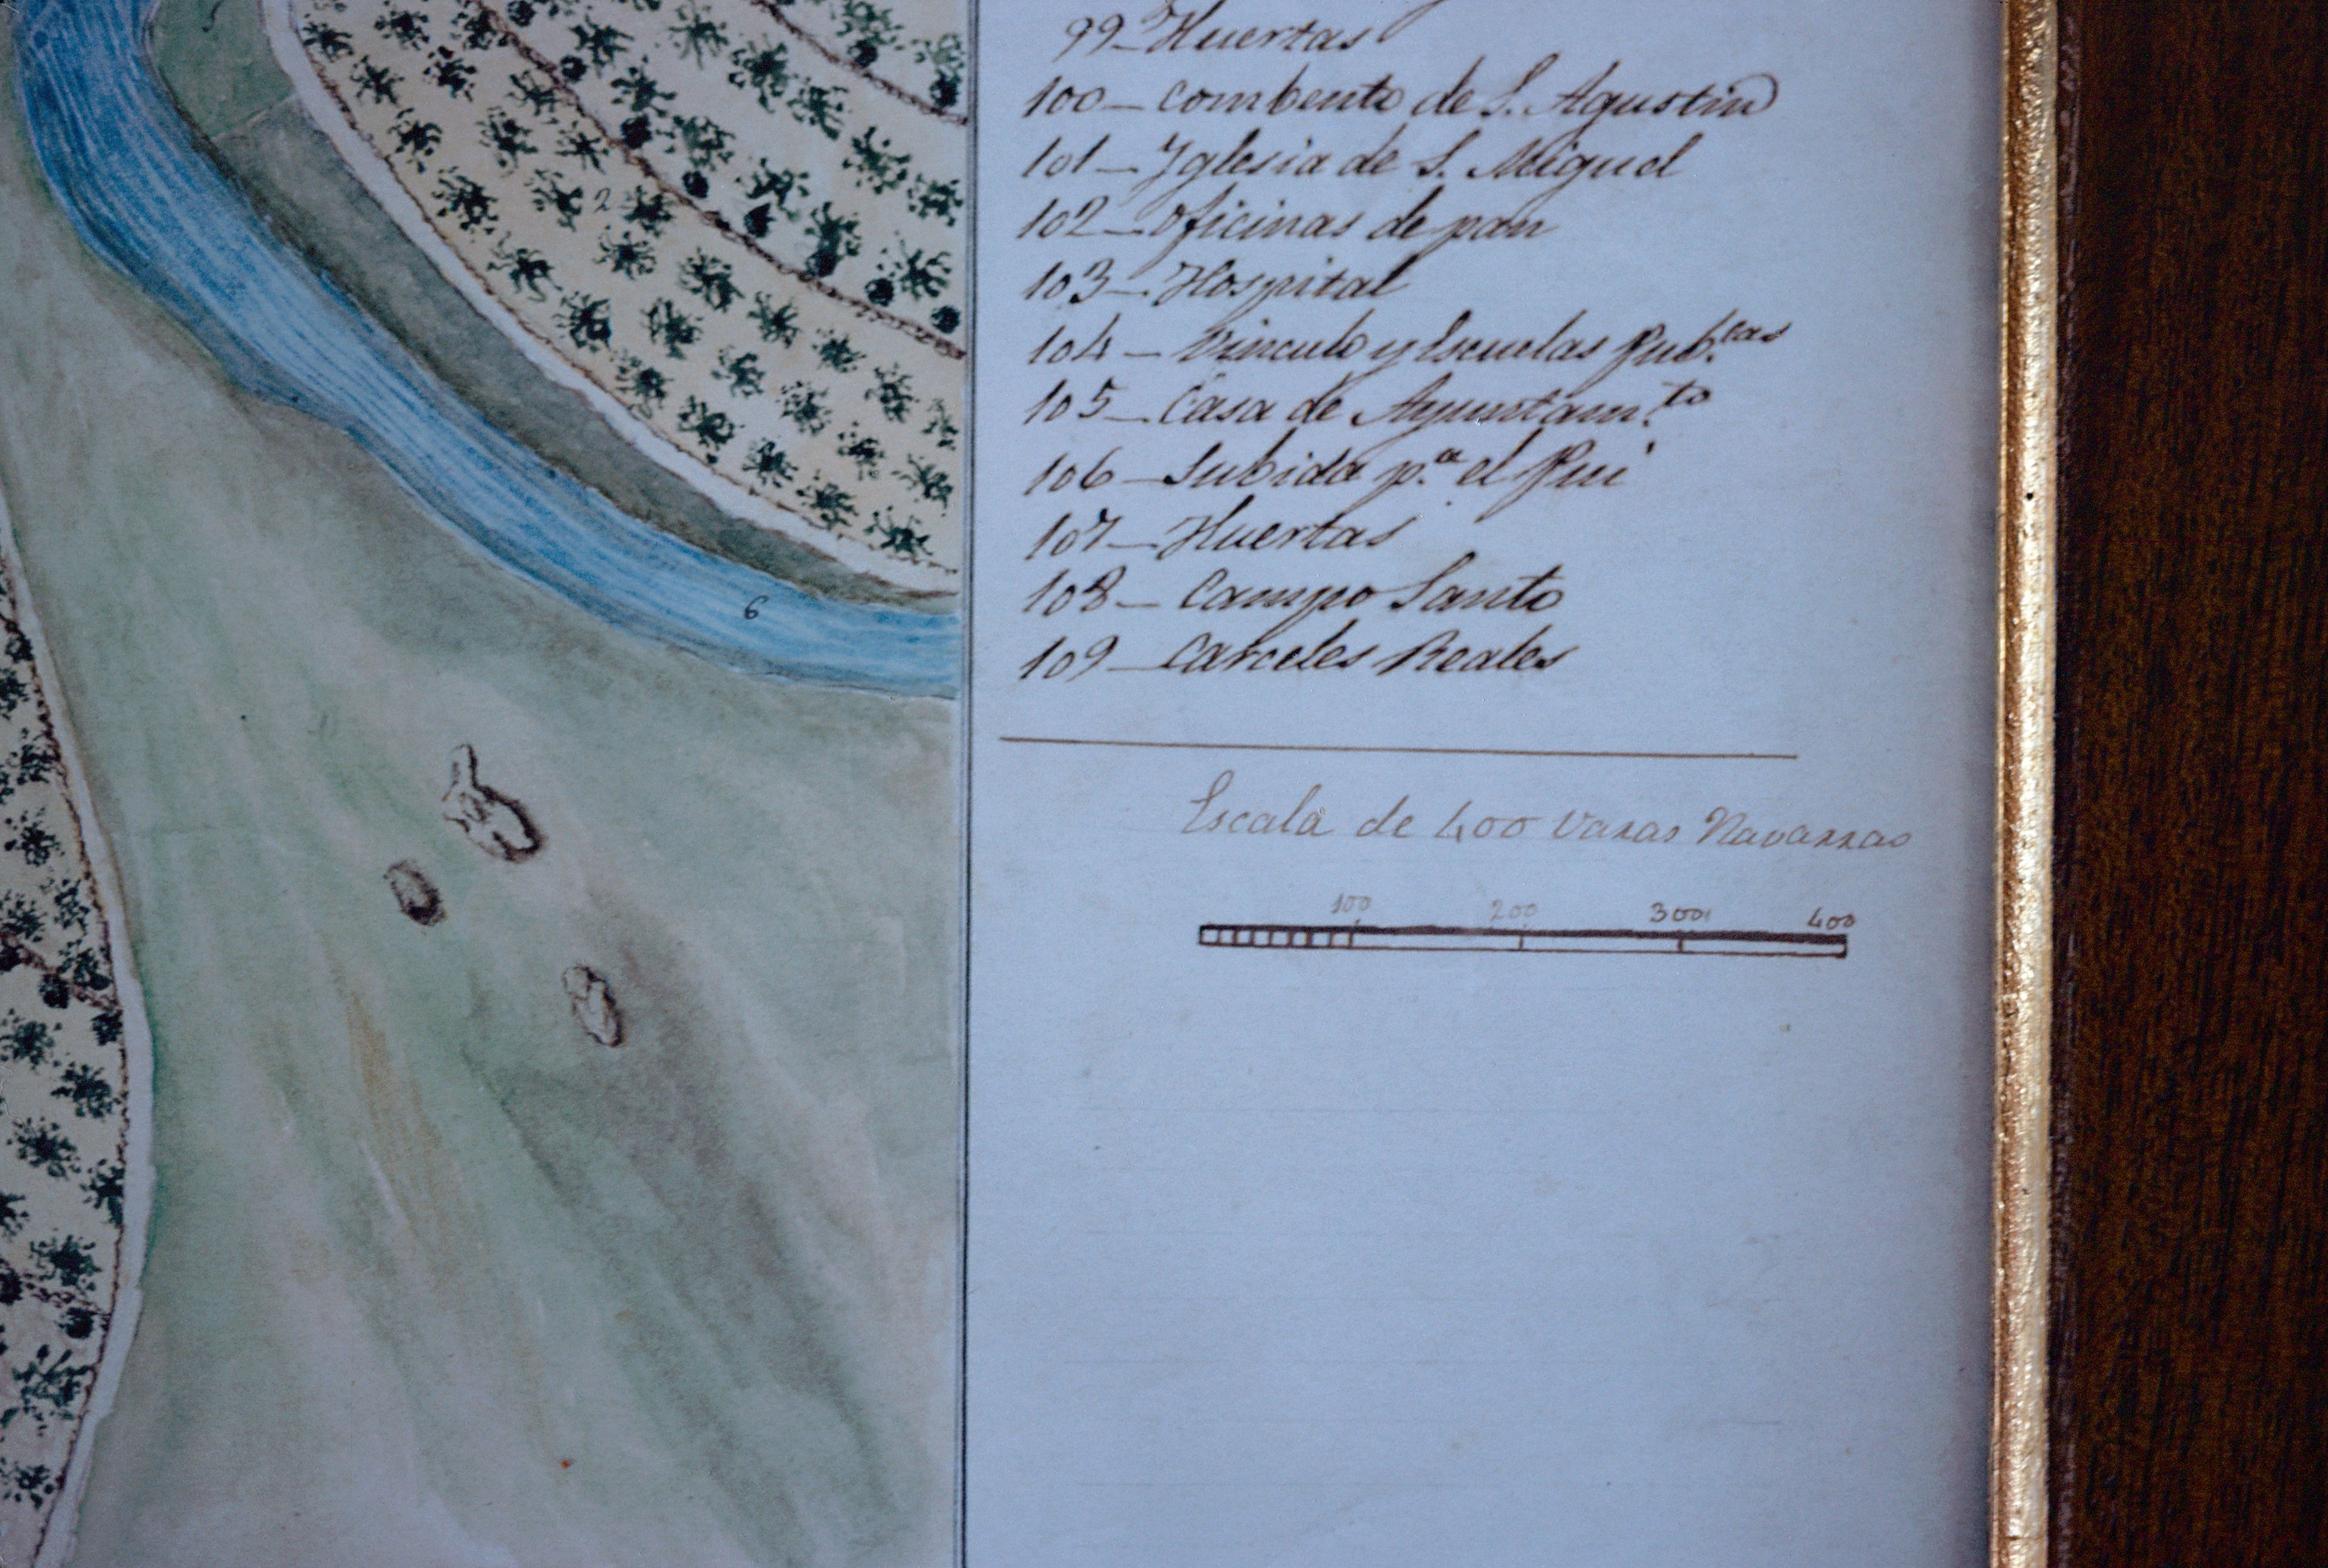 99-Huertas
100-Combento de S. Agustin
101-Yglesia de S. Miguel
102-Oficinas de pan
103-Hospital
104-Vinculo y Escuelas Pub.cas
105-Casa de Ayuntam.to
106-Subida p.a el Pui
107-Huertas
108-Campo Santo
109-Carceles Reales
Escala de 400 Varas Navarras
100 200 300 400
2
6